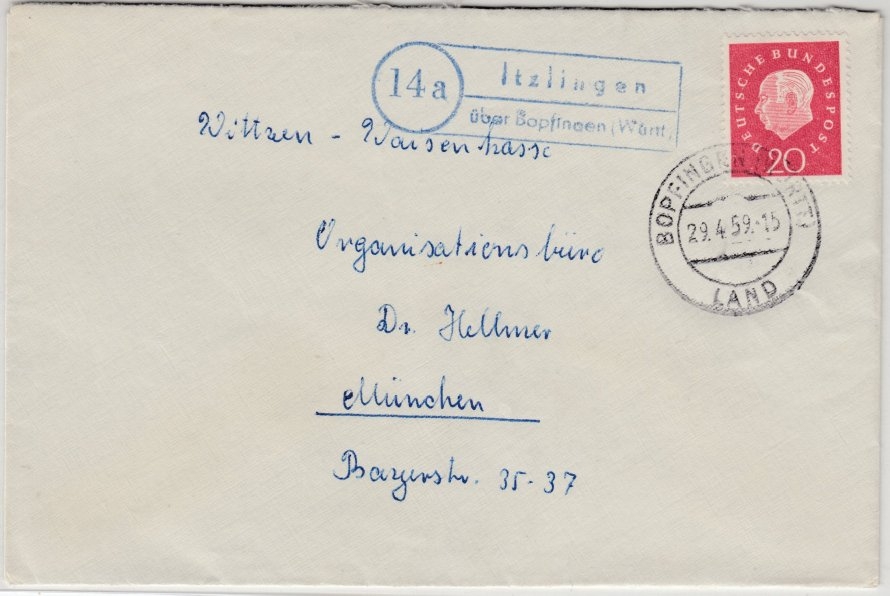 14a
Itzlingen
über Bopfingen (Württ.)
DEUTSCHE BUNDESPOST
20
BOPFINGEN (WÜRTT)
29.4.59.-15
LAND
Wittwen - Waisenkasse
Organisationsbüro
Dr. Hellmer
München
Bayerstr. 35-37